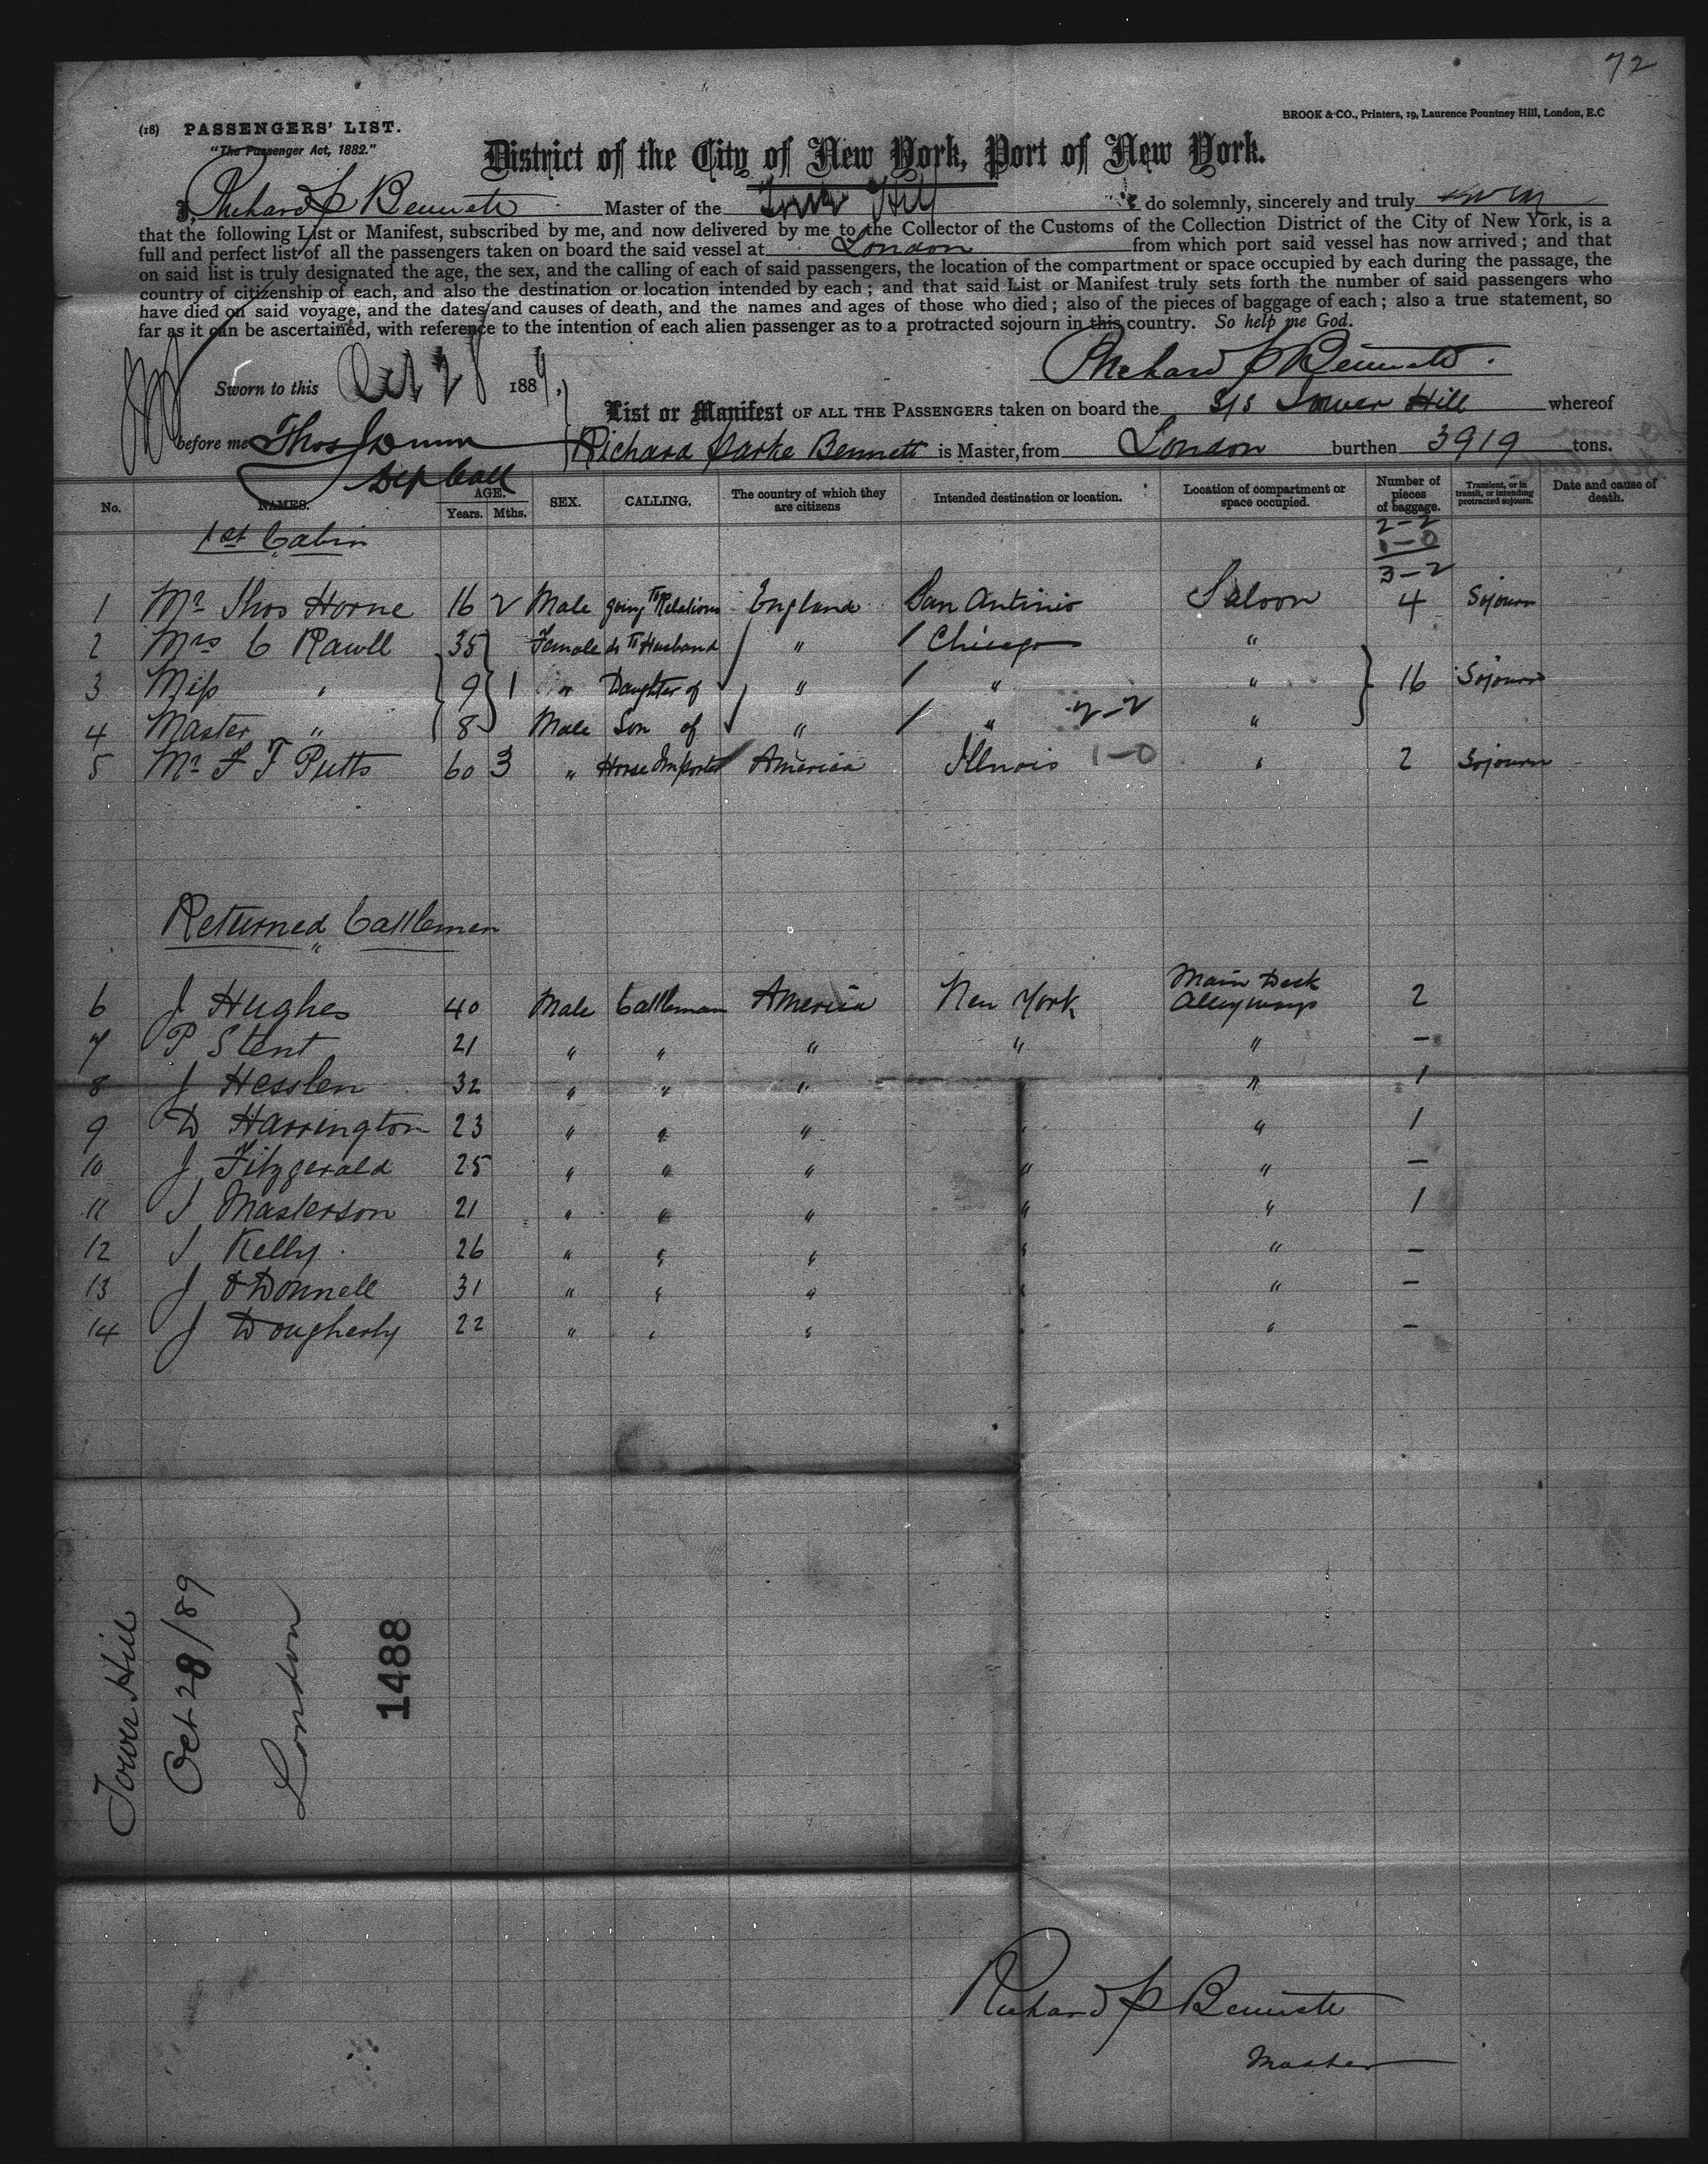 72
(18) PASSENGERS' LIST.
BROOK & CO., Printers, 19, Laurence Pountney Hill, London, E.C
"The Passenger Act, 1882."
District of the City of New York, Port of New York.
I, Richard P Bennett Master of the Tower Hill do solemnly, sincerely and truly swear
that the following List or Manifest, subscribed by me, and now delivered by me to the Collector of the Customs of the Collection District of the City of New York, is a
full and perfect list of all the passengers taken on board the said vessel at London from which port said vessel has now arrived; and that
on said list is truly designated the age, the sex, and the calling of each of said passengers, the location of the compartment or space occupied by each during the passage, the
country of citizenship of each, and also the destination or location intended by each; and that said List or Manifest truly sets forth the number of said passengers who
have died on said voyage, and the dates and causes of death, and the names and ages of those who died; also of the pieces of baggage of each; also a true statement, so
far as it can be ascertained, with reference to the intention of each alien passenger as to a protracted sojourn in this country. So help me God.
Richard P Bennett
Sworn to this Oct 28 1889,
List or Manifest OF ALL THE PASSENGERS taken on board the S/S Tower Hill whereof
before me Thos Dunn Richard Parke Bennett is Master, from London burthen 3919 tons.
Dep Coll
No. NAMES. AGE. Years. Mths. SEX. CALLING. The country of which they are citizens Intended destination or location. Location of compartment or space occupied. Number of pieces of baggage. Transient, or in transit, or intending protracted sojourn. Date and cause of death.
1st Cabin
2-2
1-0
3-2
1 Mr Thos Horne 16 2 Male going To Relations England San Antinio Saloon 4 Sojourn
2 Mrs C Rawll 35 Female do To Husband " Chicago "
3 Miss " 9 1 " Daughter of " " " 16 Sojourn
4 Master " 8 Male Son of " " 2-2 "
5 Mr F T Putts 60 3 " Horse Importer America Illnois 1-0 " 2 Sojourn
Returned Cattlemen
6 J Hughes 40 Male Cattleman America New York Main Deck Alleyways 2
7 P Stent 21 " " " " " -
8 J Hesslen 32 " " " " 1
9 D Harrington 23 " " " " " 1
10 J Fitzgerald 25 " " " " " -
11 J Masterson 21 " " " " " 1
12 J Kelly 26 " " " " " -
13 J O'Donnell 31 " " " " " -
14 J Dougherty 22 " " " " " -
Tower Hill
Oct 28/89
London
1488
Richard P Bennett
Master